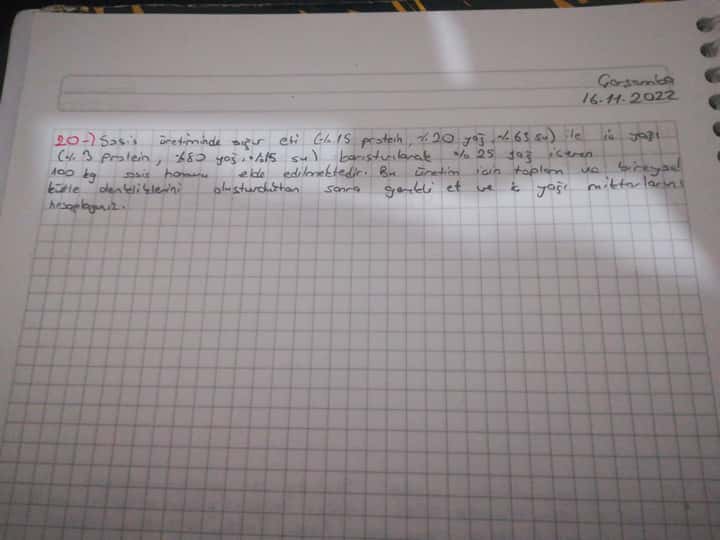 Çarşamba
16.11.2022
20-) Sosis üretiminde sığır eti (%15 protein, %20 yağ, %63 su) ile iç yağı
(%3 protein, %80 yağ, %15 su) karıştırılarak %25 yağ içeren
100 kg sosis hamuru elde edilmektedir. Bu üretim için toplam ve bireysel
kütle denkliklerini oluşturduktan sonra gerekli et ve iç yağı miktarlarını
hesaplayınız.